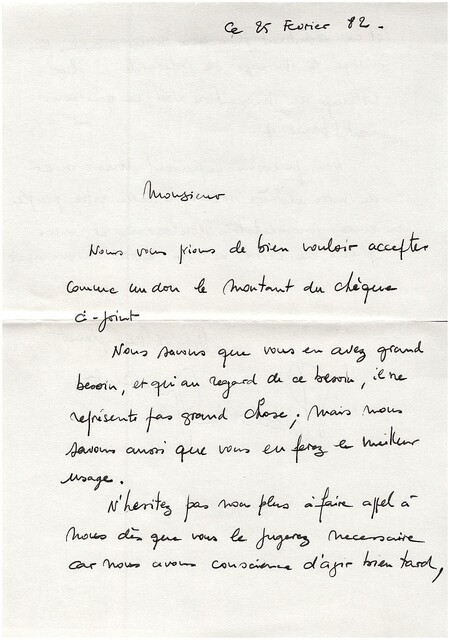 Ce 25 Fevrier 82.
Monsieur
Nous vous prions de bien vouloir accepter
comme un don le montant du chèque
ci-joint
Nous savons que vous en avez grand
besoin, et qu'au regard de ce besoin, il ne
représente pas grand chose; mais nous
savons aussi que vous en ferez le meilleur
usage.
N'hesitez pas non plus à faire appel à
nous dès que vous le jugerez necessaire
car nous avons conscience d'agir bien tard,